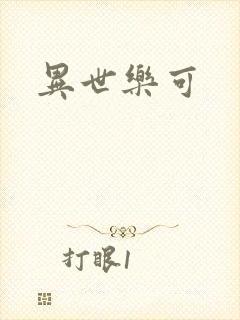 異世樂可
打眼1